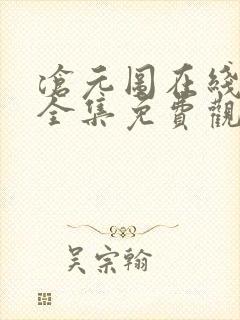 滄元圖在綫
全集免費觀
吴宗翰